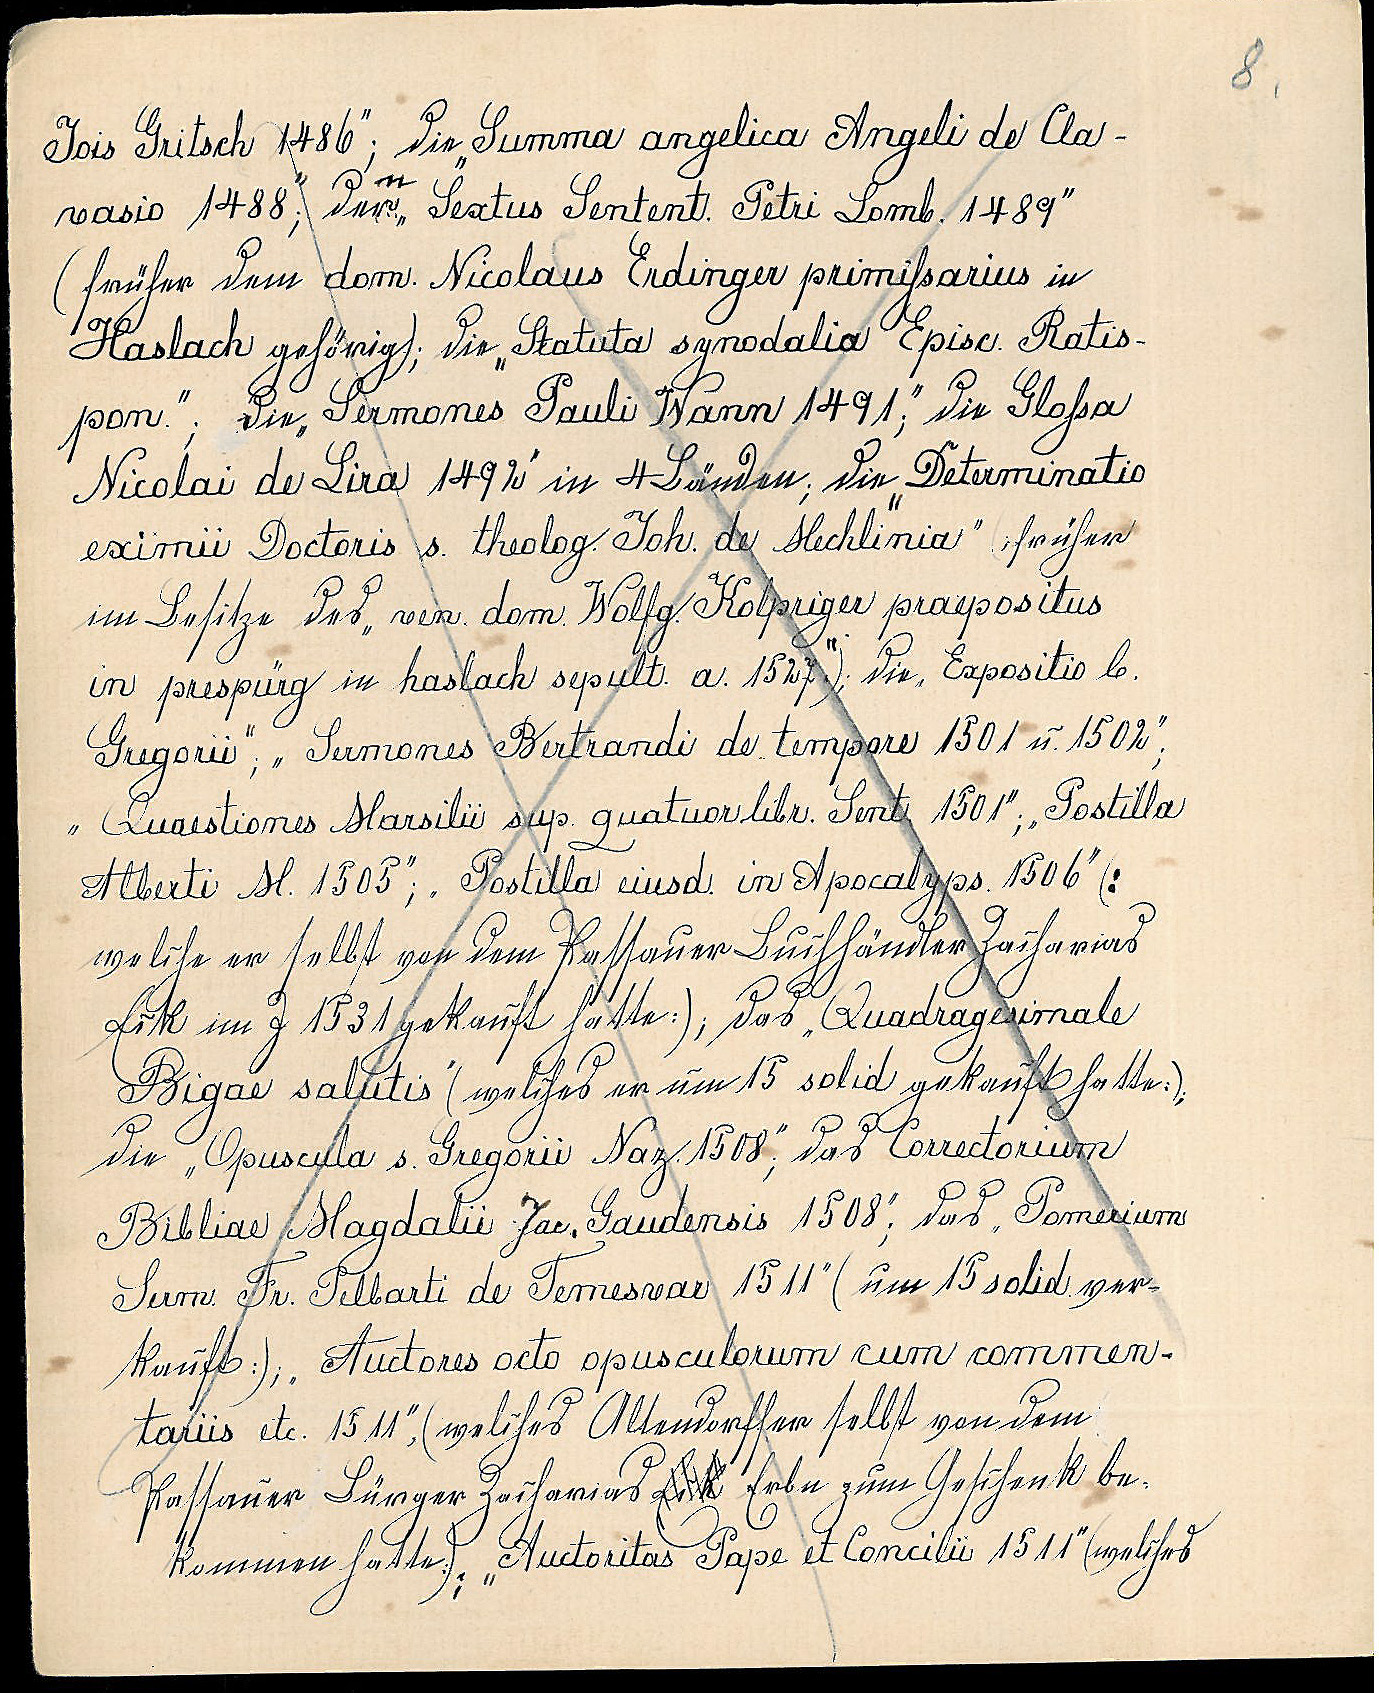 8.
Jois Gritsch 1486"; die „Summa angelica Angeli de Cla-
vasio 1488"; den „Sextus Sentent. Petri Lomb. 1489"
(früher dem dom. Nicolaus Erdinger primißarius in
Haslach gehörig); die „Statuta synodalia Episc. Ratis-
pon."; die „Sermones Pauli Wann 1491;" die Gloßa
Nicolai de Lira 1492" in 4 Bänden; die „Determinatio
eximii Doctoris s. theolog. Joh. de Mechlinia" (:früher
im Besitze des „ven. dom. Wolfg. Kolpriger praepositus
in prespürg in haslach sepult. a. 1527"); die „Expositio b.
Gregorii"; „Sermones Bertrandi de tempore 1501 u. 1502";
„Quaestiones Marsilii sup. quatuor libr. Sent. 1501"; „Postilla
Alberti M. 1505"; „Postilla eiusd. in Apocalyps. 1506" (:
welche er selbst von dem Passauer Buchhändler Zacharias
im J 1531 gekauft hatte:); das „Quadragesimale
Bigae salutis" (welches er um 15 solid gekauft hatte:);
die „Opuscula s. Gregorii Naz. 1508"; das Correctorium
Bibliae Magdalii Jac. Gaudensis 1508"; das „Pomerium
Serm. Fr. Pelbarti de Temesvar 1511" (um 15 solid. ver-
kauft:); „Auctores octo opusculorum cum commen-
tariis etc. 1511", (welches Altendorffer selbst von dem
Passauer Bürger Zacharias Erbn zum Geschenk be-
kommen hatte:); „Auctoritas Pape et Concilii 1511" (welches